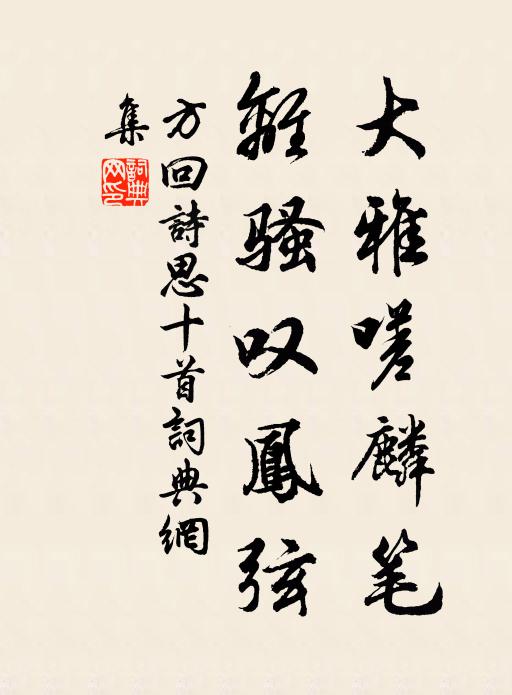 大雅嗟麟笔
離骚叹鳳弦
方回詩思十首詞典網
集
詞典網印